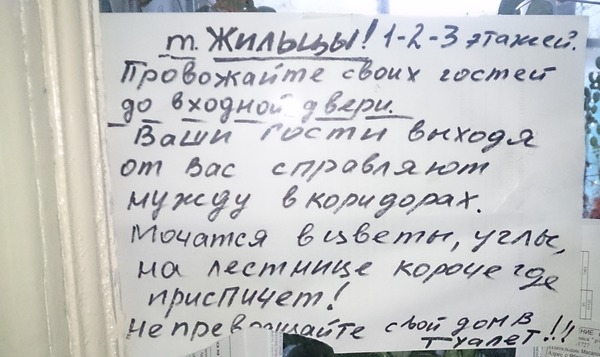 т. Жильцы! 1-2-3 этажей.
Провожайте своих гостей
до входной двери.
Ваши гости выходя
от вас справляют
мужду в коридорах.
Мочатся в цветы, углы,
на лестнице короче где
приспичет!
Не превращайте свой дом в
туалет!!!